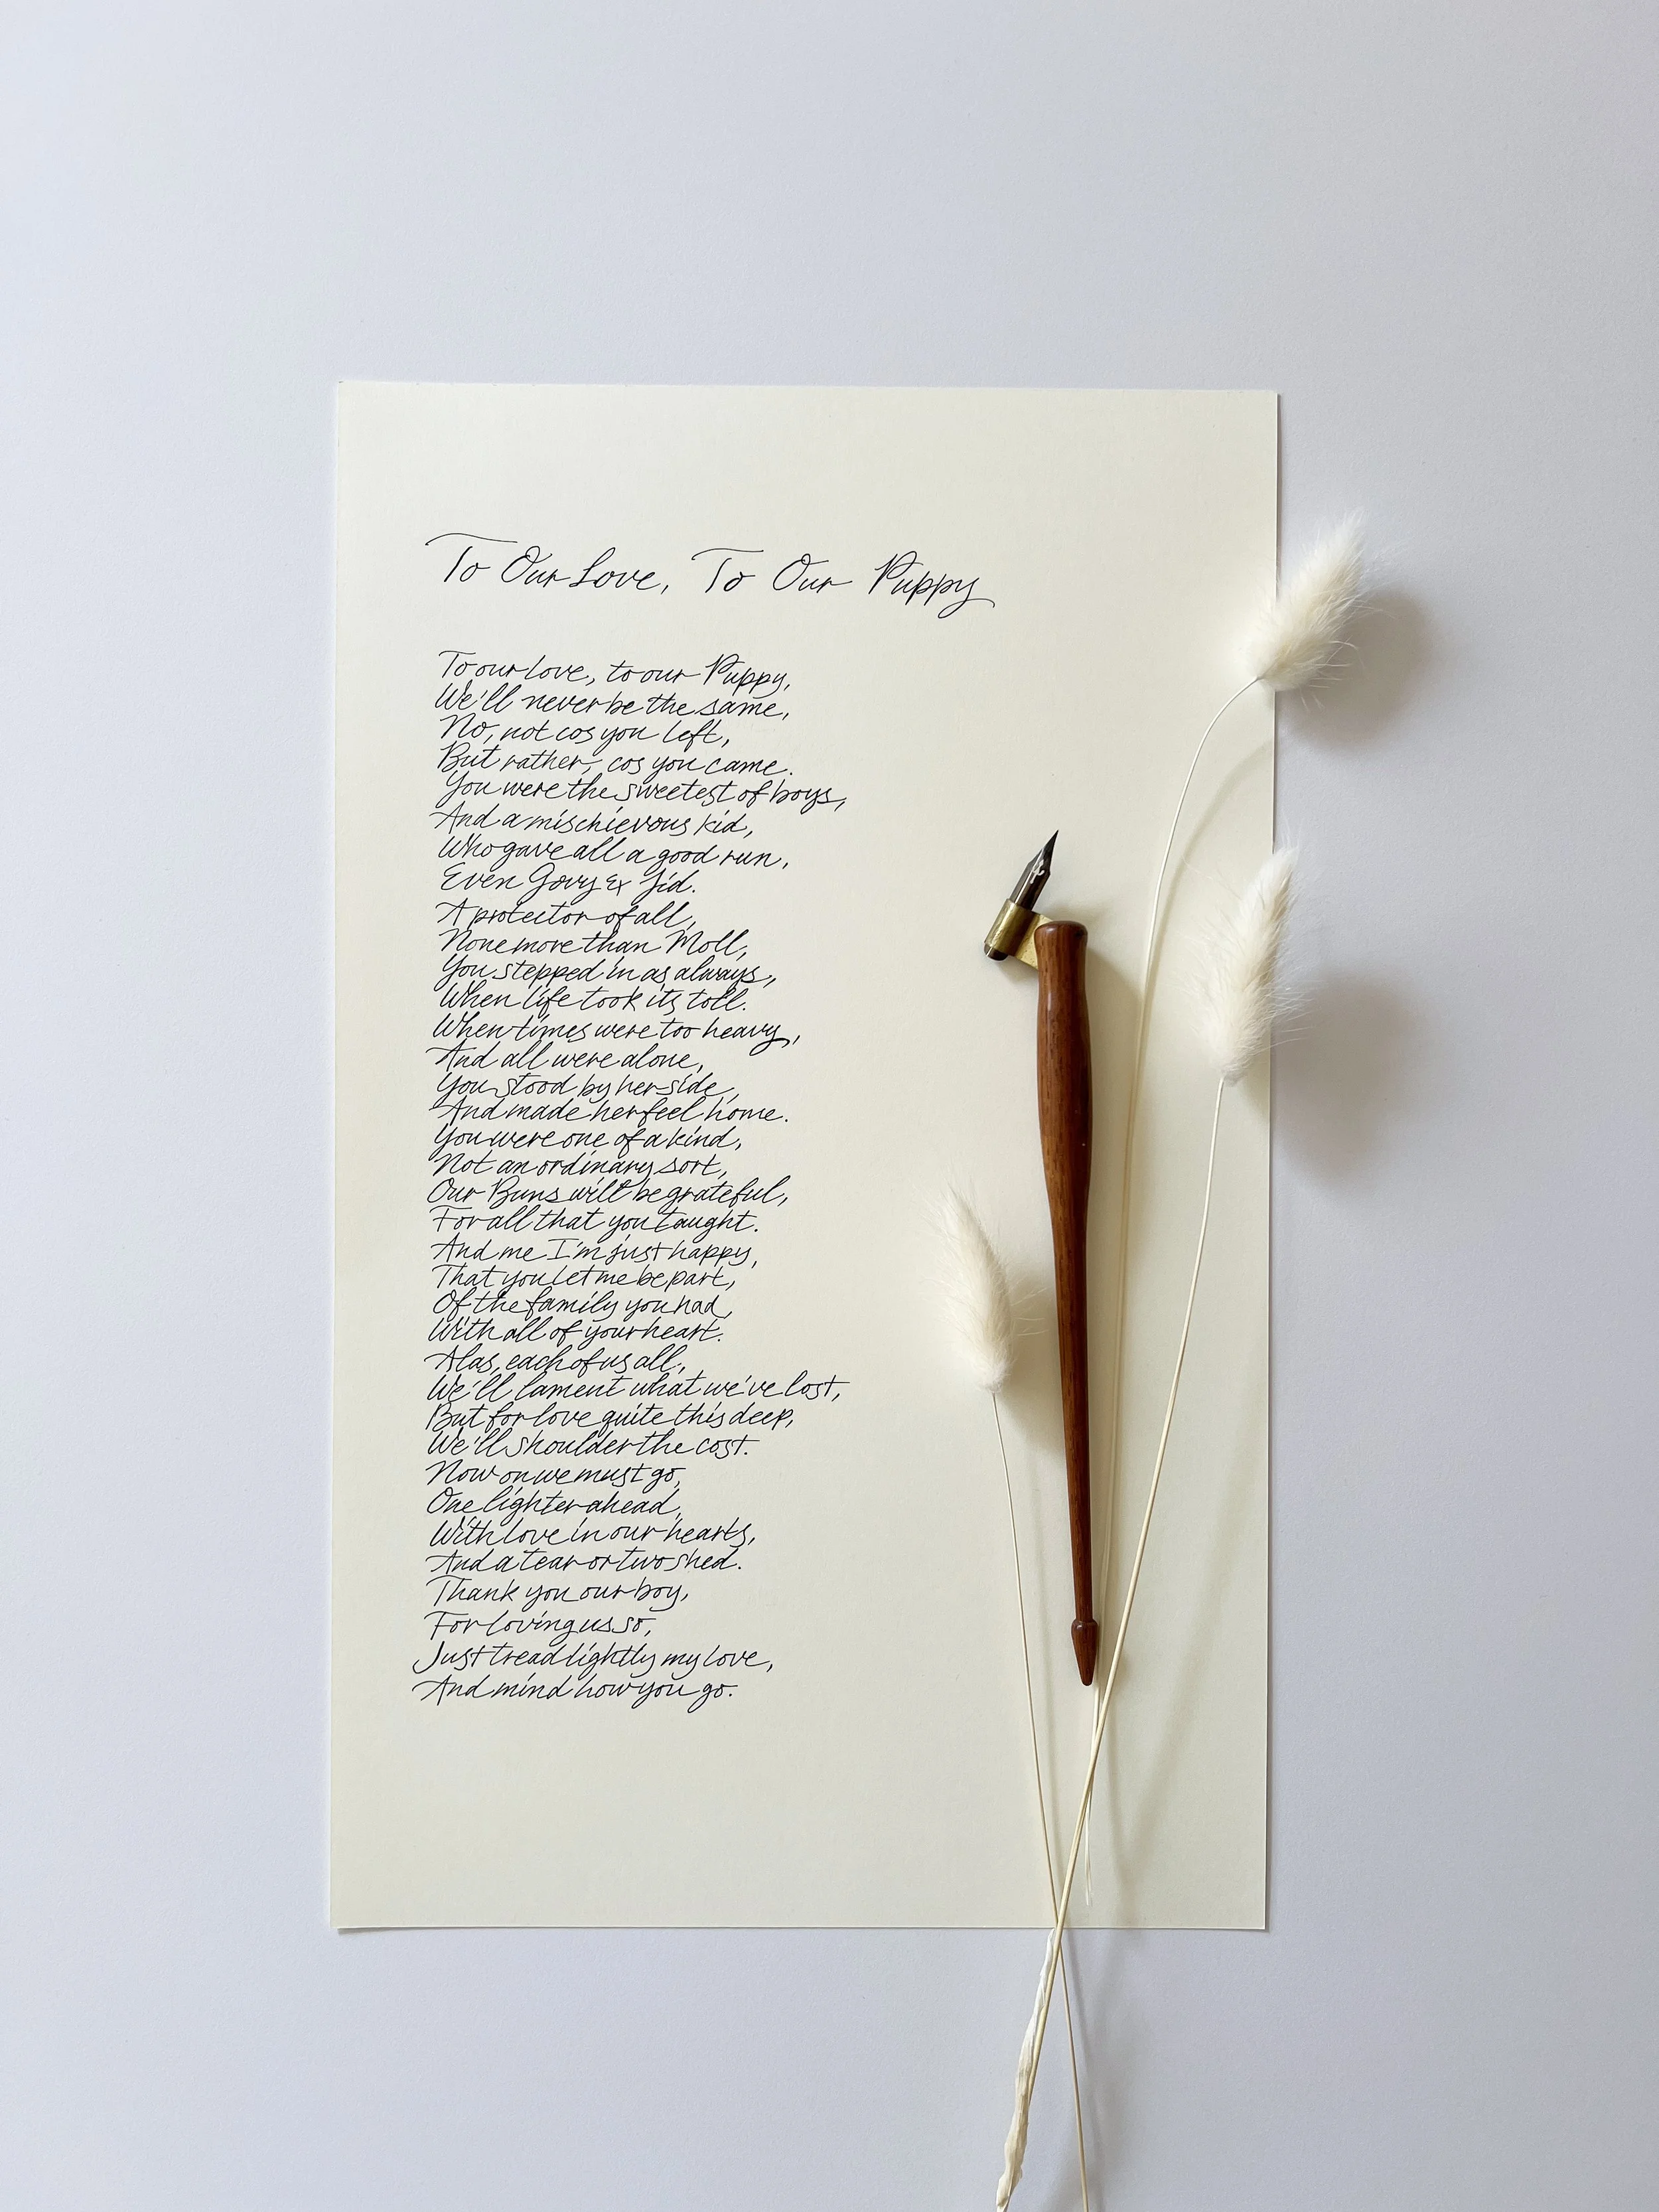 To Our Love, To Our Puppy
To our love, to our Puppy,
We'll never be the same,
No, not cos you left,
But rather, cos you came.
You were the sweetest of boys,
And a mischievous kid,
Who gave all a good run,
Even Govy & Jid.
A protector of all,
None more than Moll,
You stepped in as always,
When life took its toll.
When times were too heavy,
And all were alone,
You stood by her side,
And made her feel home.
You were one of a kind,
Not an ordinary sort,
Our Buns will be grateful,
For all that you taught.
And me I'm just happy,
That you let me be part,
Of the family you had,
With all of your heart.
Alas, each of us all,
We'll lament what we've lost,
But for love quite this deep,
We'll shoulder the cost.
Now on we must go,
One lighter ahead,
With love in our hearts,
And a tear or two shed.
Thank you our boy,
For loving us so,
Just tread lightly my love,
And mind how you go.